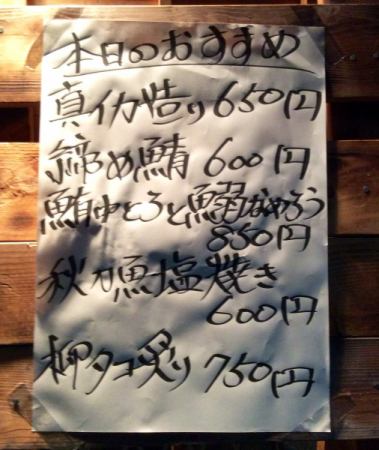 本日のおすすめ
真イカ造り 650円
締め鯖 600円
鮪中とろと鰯なめろう
850円
秋刀魚塩焼き
600円
柳タコ炙り 750円